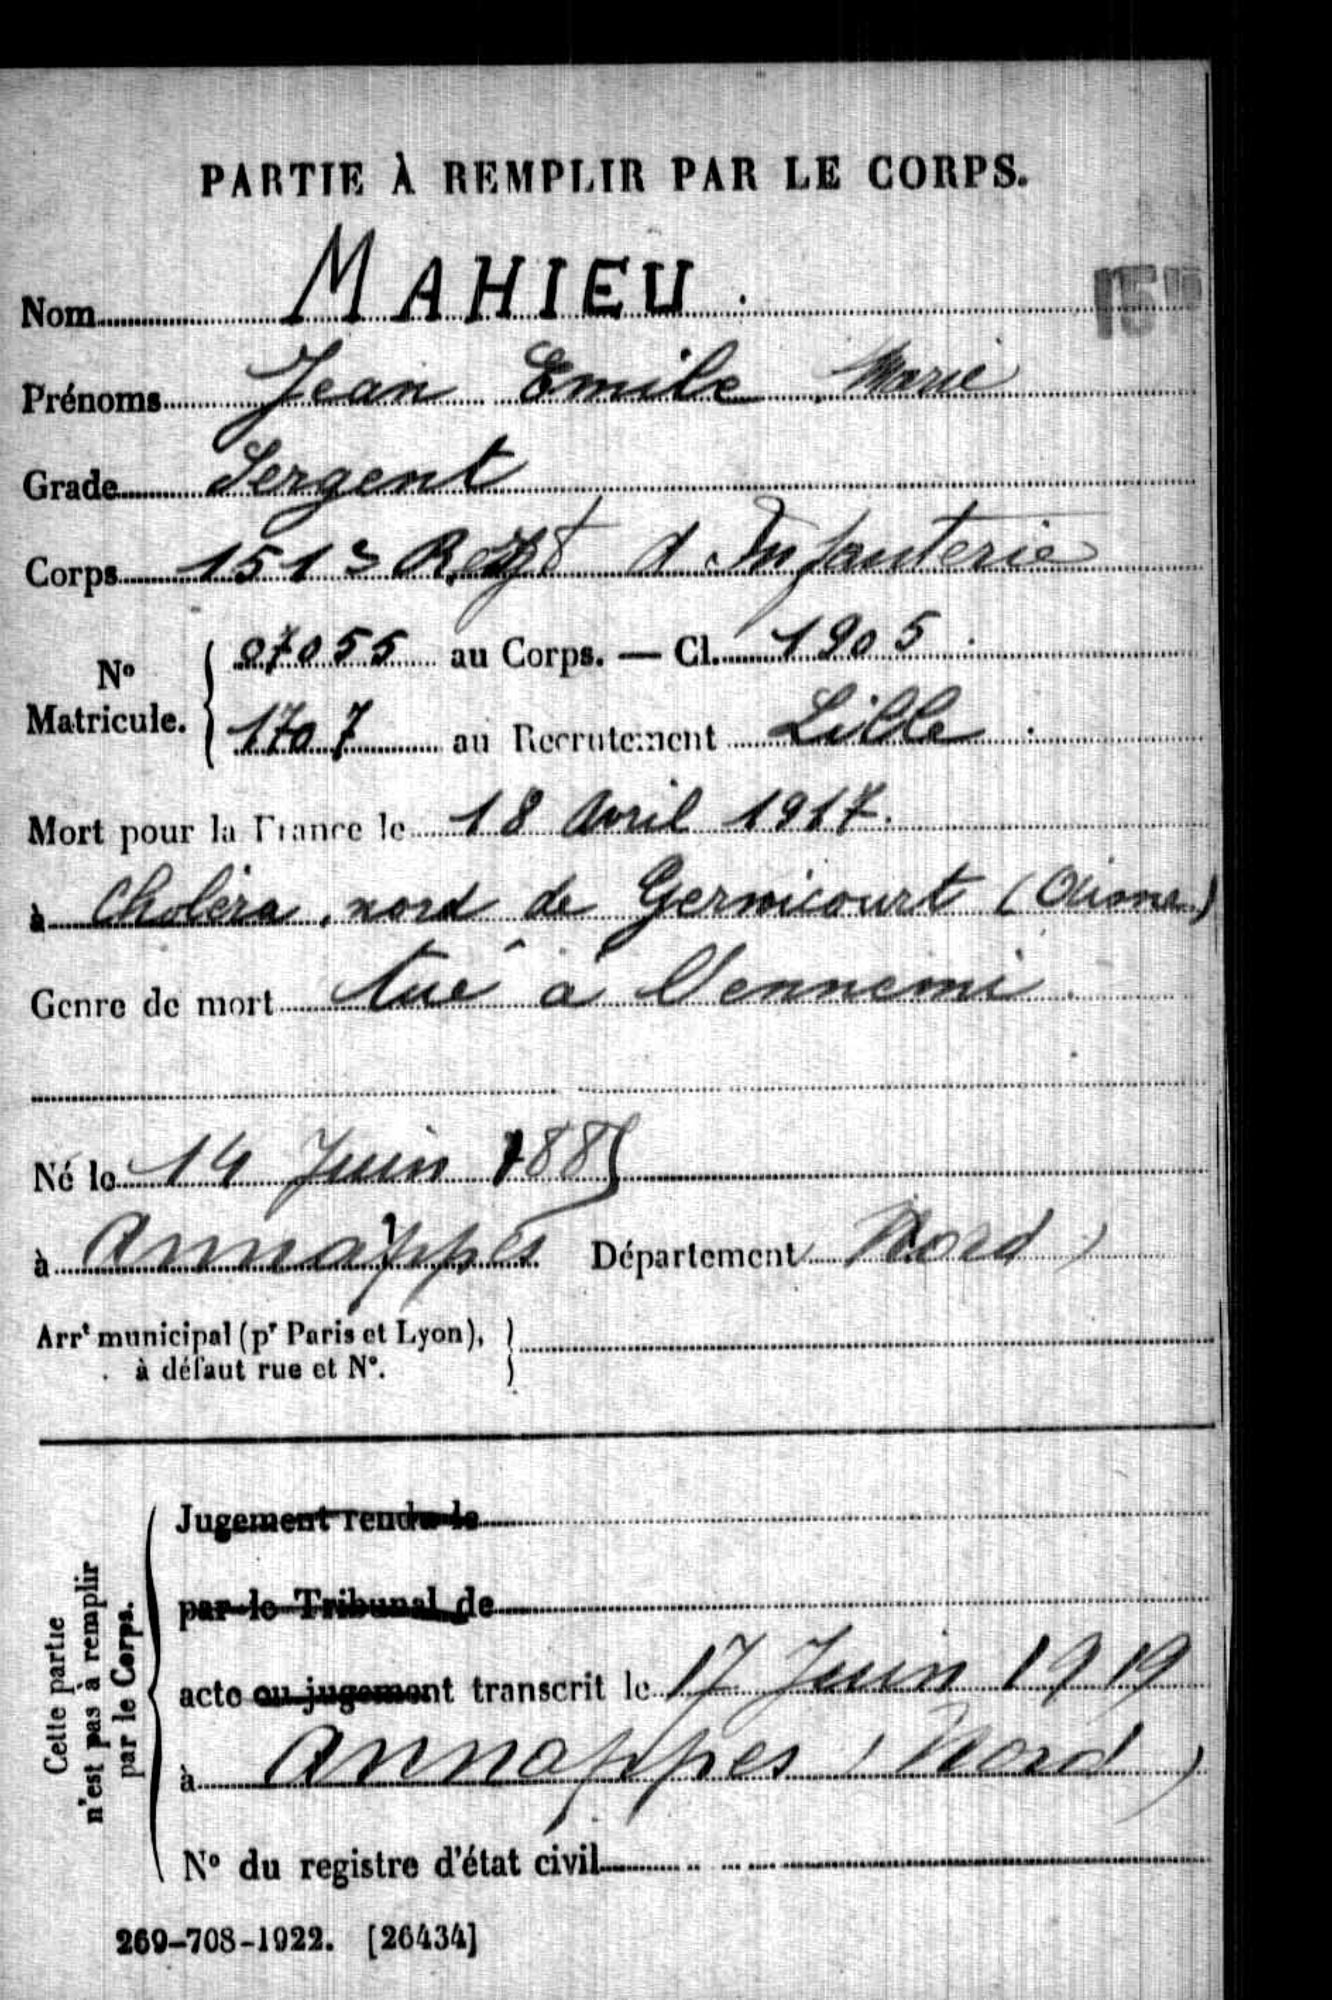 PARTIE À REMPLIR PAR LE CORPS.
Nom MAHIEU
Prénoms Jean Emile Marie
Grade Sergent
Corps 151e Regt d'Infanterie
No Matricule. 07055 au Corps. — Cl. 1905
1707 au Recrutement Lille
Mort pour la France le 18 Avril 1917.
à Choléra, nord de Gernicourt (Aisne)
Genre de mort tué à l'ennemi
Né le 14 Juin 1885
à Annappes Département Nord)
Arrt municipal (pr Paris et Lyon),
à défaut rue et No.
Cette partie n'est pas à remplir par le Corps.
Jugement rendu le
par le Tribunal de
acte ou jugement transcrit le 17 Juin 1919
à Annappes (Nord)
No du registre d'état civil
269-708-1922. [26434]